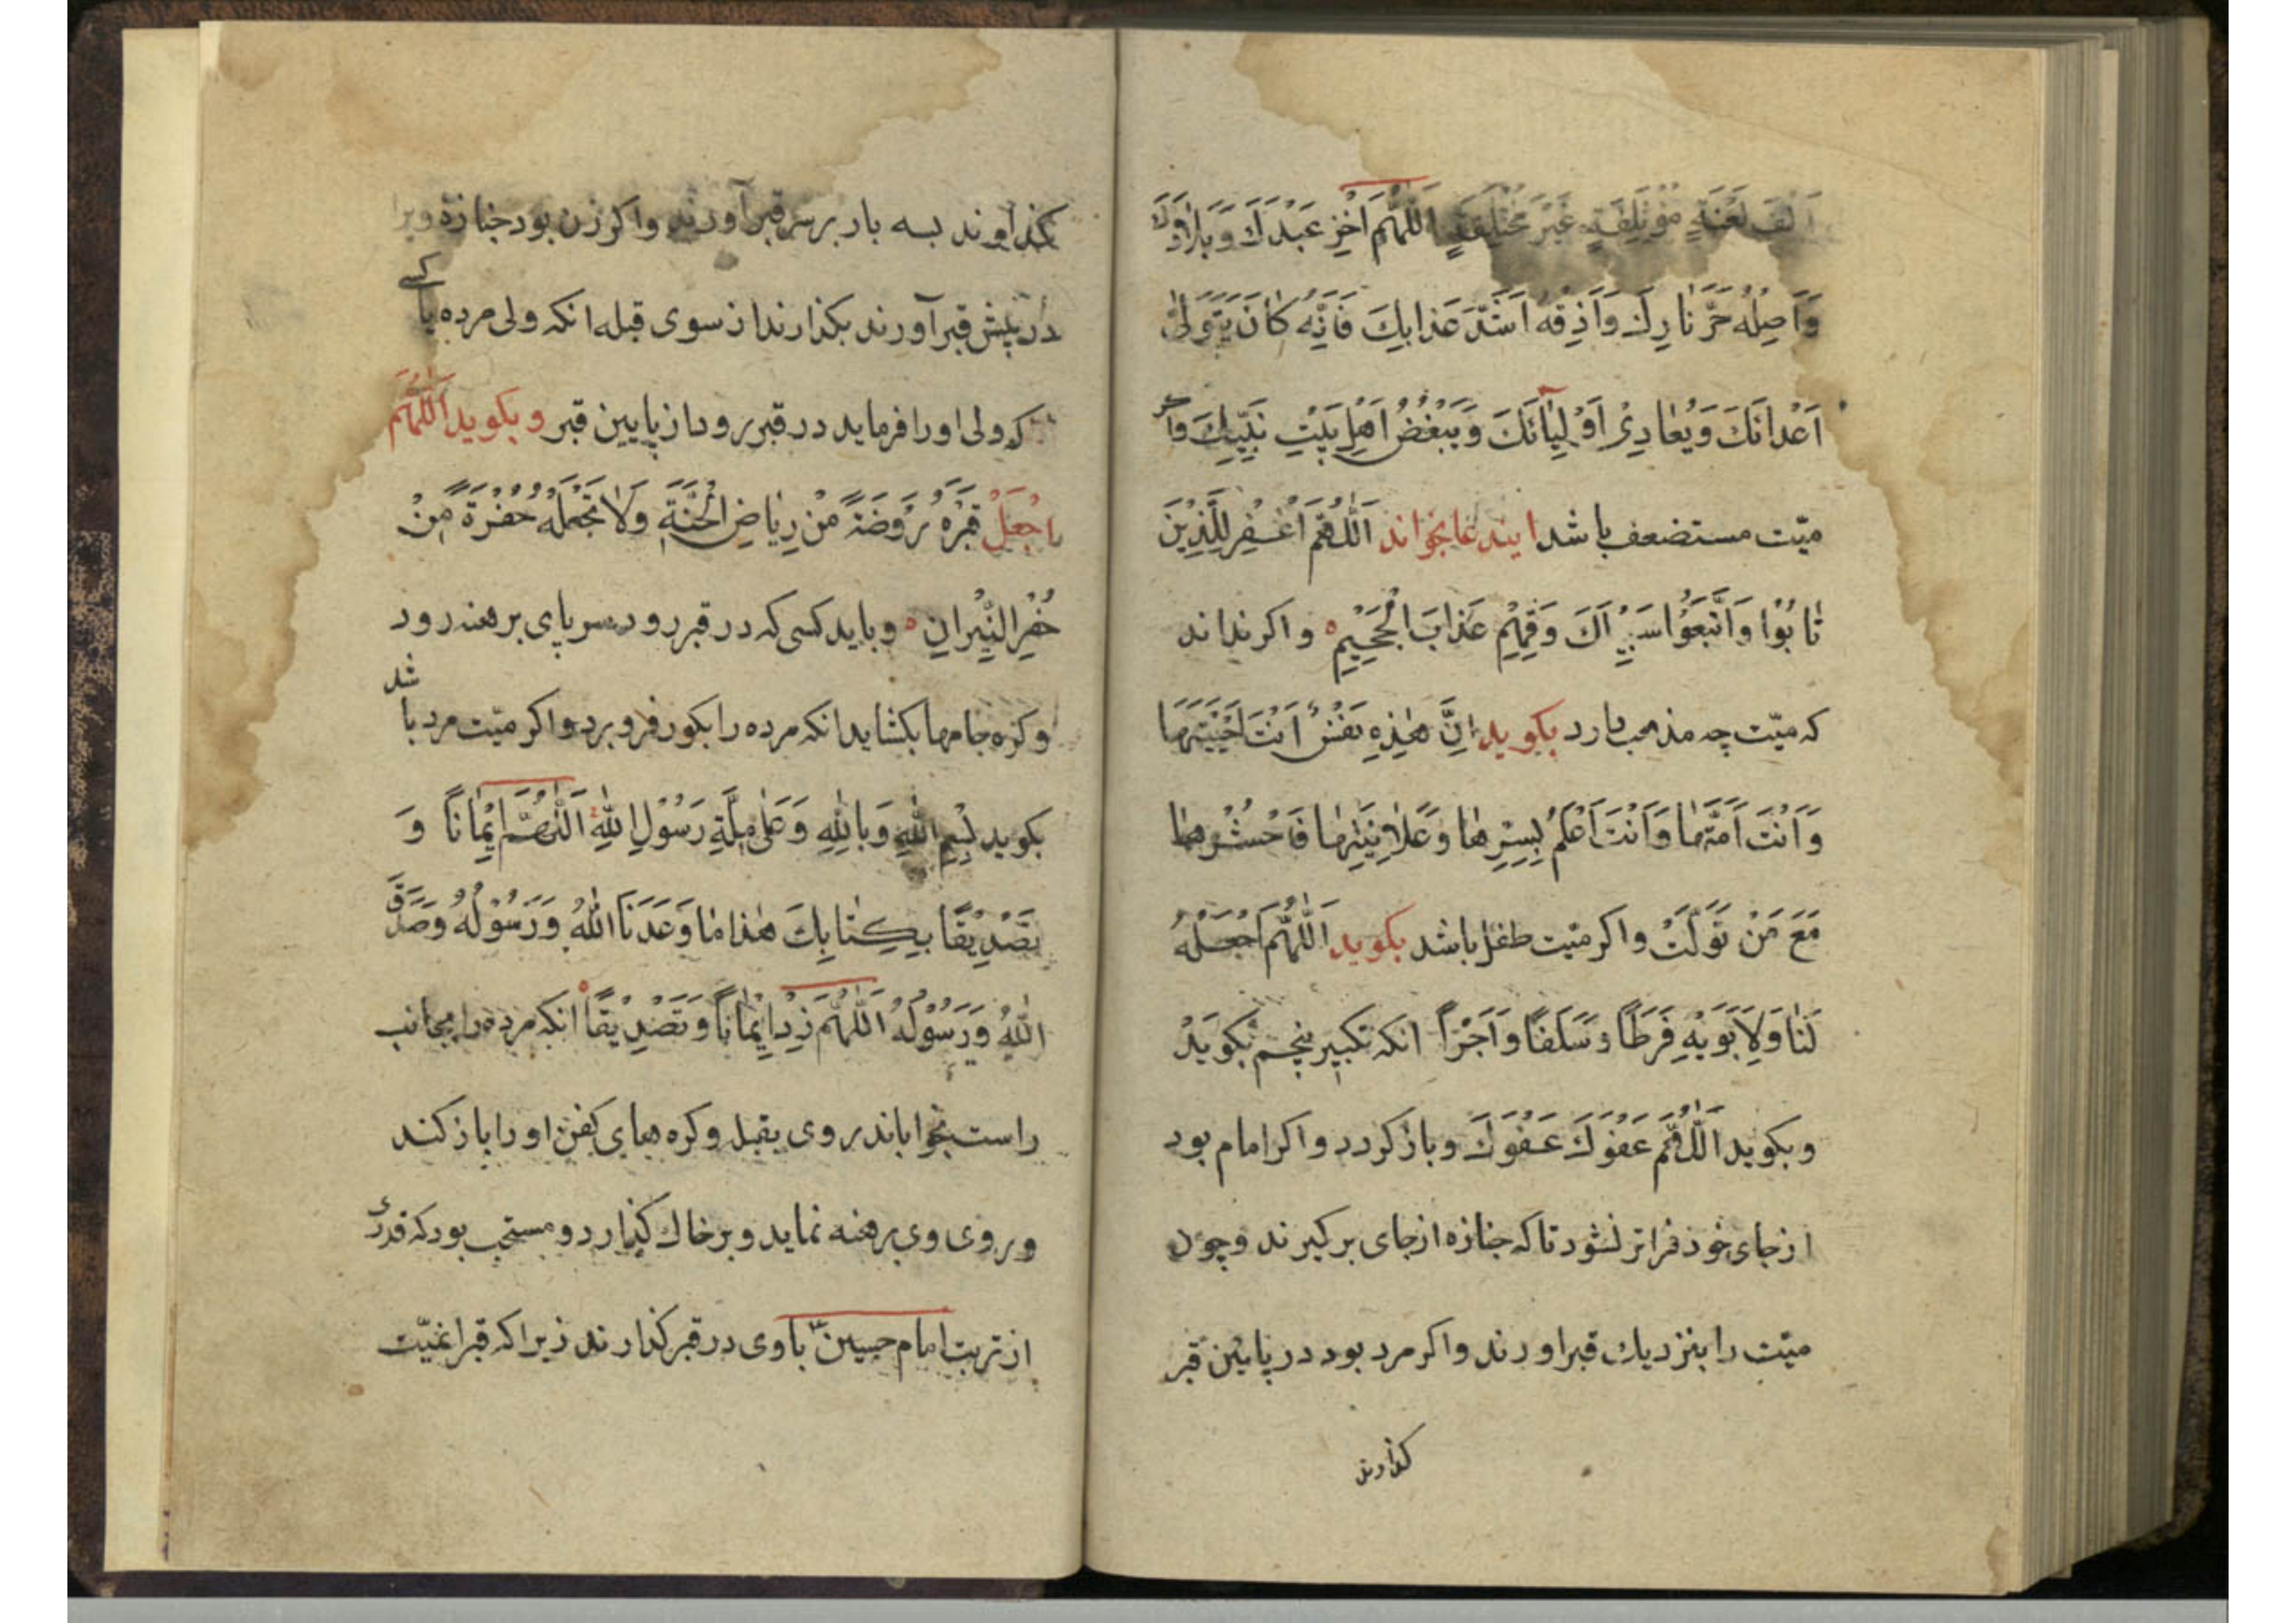 اَلْفَ لَعْنَةٍ مُؤْتَلِفَةٍ غَيْرَ مُخْتَلِفَةٍ اَللّٰهُمَّ اَخْزِ عَبْدَكَ وَ بِلَادَكَ
وَاَصِلْهُ حَرَّ نَارِكَ وَاَذِقْهُ اَشَدَّ عَذَابِكَ فَاِنَّهُ كَانَ يَتَوَلّٰى
اَعْدَائَكَ وَيُعَادِىْ اَوْلِيَائَكَ وَيَبْغُضُ اَهْلَ بَيْتِ نَبِيِّكَ واكر
ميّت مستضعف باشد ايندعا بخواند اَللّٰهُمَّ اغْفِرْ لِلَّذِيْنَ
تَابُوْا وَاتَّبَعُوْا سَبِيْلَكَ وَقِهِمْ عَذَابَ الْجَحِيْمِ واكر نداند
كه ميّت چه مذهب دارد بكويد اِنَّ هٰذِهِ نَفْسٌ اَنْتَ اَحْيَيْتَهَا
وَاَنْتَ اَمَتَّهَا وَاَنْتَ اَعْلَمُ بِسِرِّهَا وَعَلَانِيَتِهَا فَاحْشُرْهَا
مَعَ مَنْ تَوَلَّتْ واكر ميّت طفل باشد بكويد اَللّٰهُمَّ اجْعَلْهُ
لَنَا وَلِاَبَوَيْهِ فَرَطًا وَسَلَفًا وَاَجْرًا انكه تكبير پنجم بكويد
وبكويد اَللّٰهُمَّ عَفْوَكَ عَفْوَكَ وباز كردد واكر امام بود
از جاى خود فراتر نشود تا كه جنازه از جاى بركيرند وچون
ميّت را بنزديك قبر اورند واكر مرد بود در پايين قبر
كذارند
كذارند بسه بار بر سر قبر آورند واكر زن بود جنازهٔ ويرا
در پيش قبر آورند بكذارند از سوى قبله انكه ولى مرده يا كسى
كه ولى اورا فرمايد در قبر رود از پايين قبر وبكويد اَللّٰهُمَّ
اجْعَلْ قَبْرَهُ رَوْضَةً مِنْ رِيَاضِ الْجَنَّةِ وَلَا تَجْعَلْهُ حُفْرَةً مِنْ
حُفَرِ النِّيْرَانِ وبايد كسى كه در قبر رود سر پاى برهنه رود
وكره جامها بكشايد انكه مرده را بكور فرو برد واكر ميّت مرد باشد
بكويد بِسْمِ اللّٰهِ وَبِاللّٰهِ وَعَلٰى مِلَّةِ رَسُوْلِ اللّٰهِ اَللّٰهُمَّ اِيْمَانًا وَ
تَصْدِيْقًا بِكِتَابِكَ هٰذَا مَا وَعَدَنَا اللّٰهُ وَرَسُوْلُهُ وَصَدَقَ
اللّٰهُ وَرَسُوْلُهُ اَللّٰهُمَّ زِدْ اِيْمَانًا وَتَصْدِيْقًا انكه مرده را بجانب
راست بخواباند روى بقبله وكره هاى كفن او را باز كند
وروى وى برهنه نمايد وبر خاك كذارد ومستحب بود كه قدرى
از تربت امام حسين باوى در قبر كذارند زيرا كه قبرا